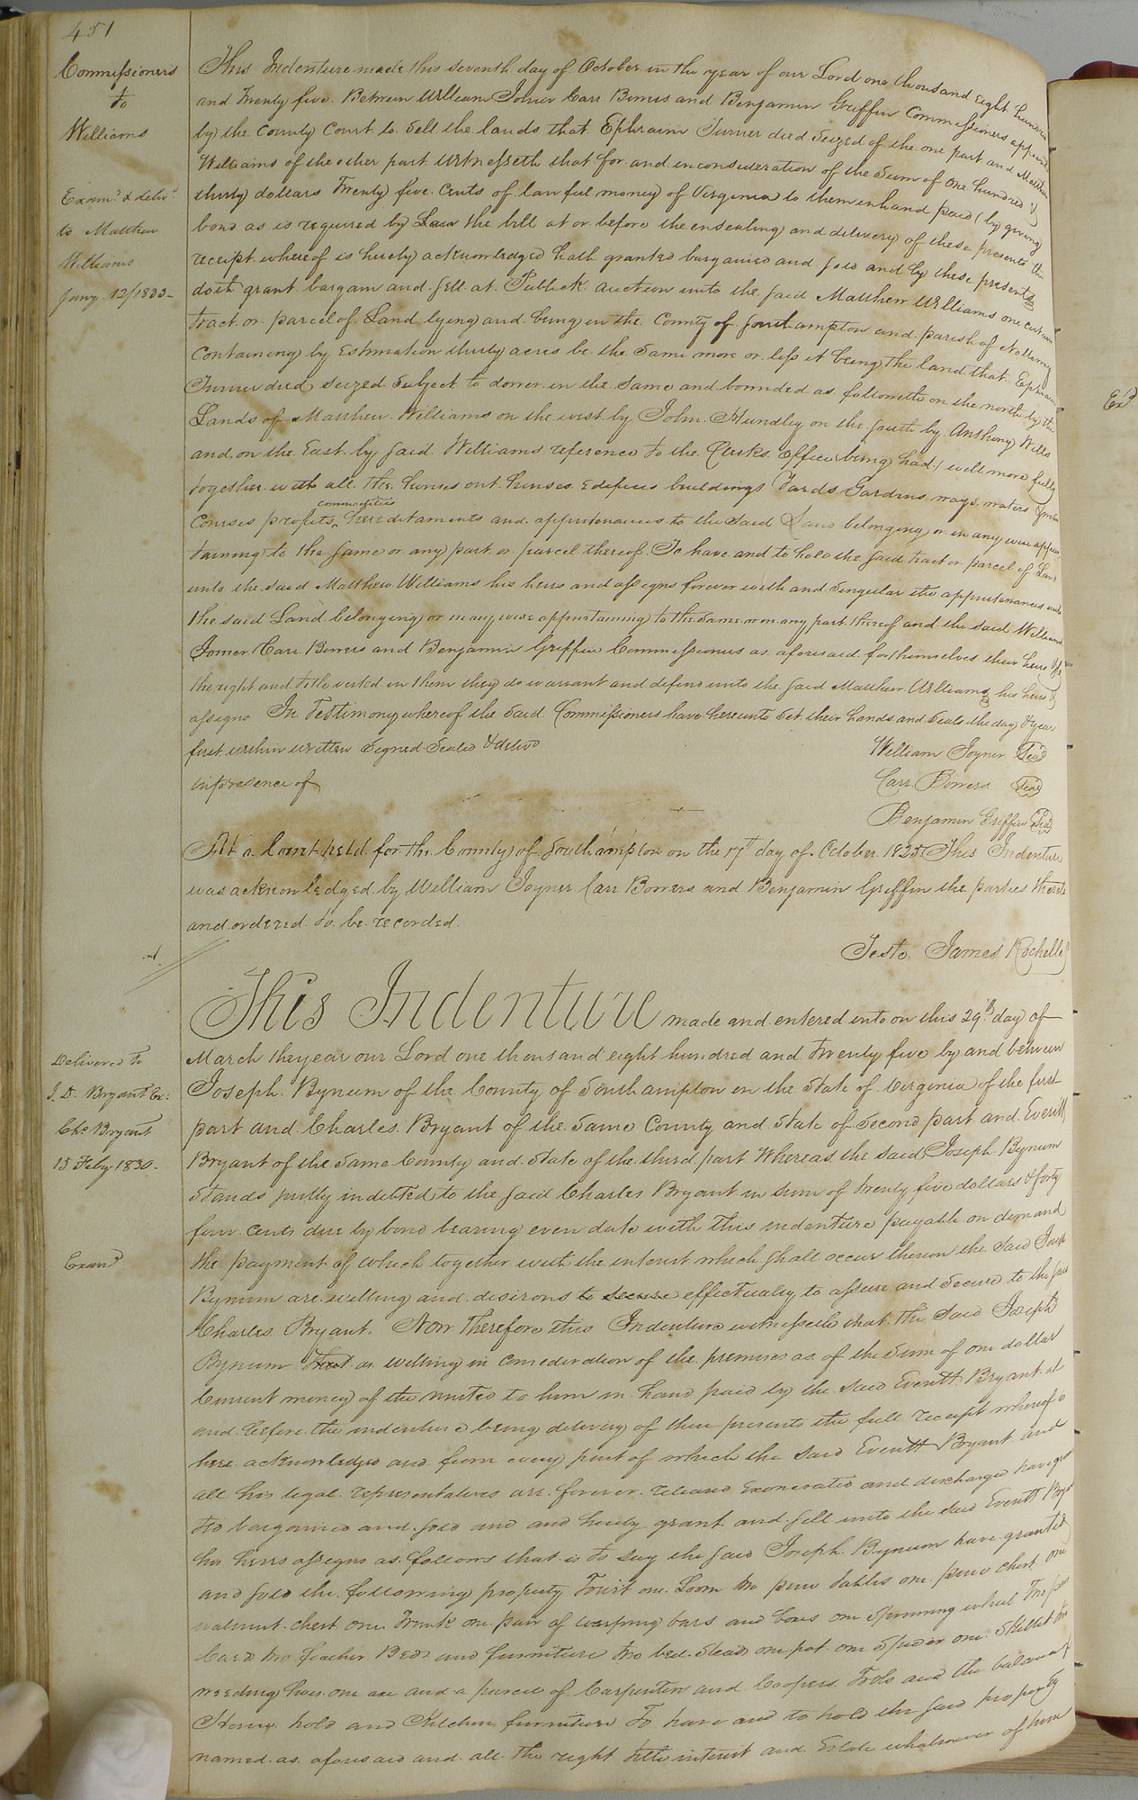 451
Commissioners
to
Williams
Examd & delivd
to Matthew
Williams
Jany 12/1833-
This Indenture made this seventh day of October in the year of our Lord one thousand eight hundred
and twenty five. Between William Joiner Carr Bowers and Benjamin Griffin Commissioners
by the County Court to sell the lands that Ephraim Turner died Seized of the one part and Matthew
Williams of the other part Witnesseth that for and in consideration of the Sum of one hundred &
thirty dollars Twenty five Cents of lawful money of Virginia to them in hand paid (by giving
bond as is required by Law the bill at or before the ensealing and delivery of these presents the
receipt whereof is hereby acknowledged hath granted bargained and sold and by these presents
doth grant bargain and sell at Publick auction unto the said Matthew Williams one certain
tract or parcel of Land lying and being in the County of Southampton and parish of Nottoway
Containing by Estimation thirty acres be the Same more or less it being the land that Ephraim
Turner died seized Subject to dower in the Same and bounded as followeth on the north by the
Lands of Matthew Williams on the west by John Hundley on the south by Anthony Wills
and on the East by said Williams reference to the Clerks Office being had) will more fully
together with all the houses out houses Edefices buildings Yards Gardens ways waters
commodities
Courses profits hereditaments and appurtenances to the said Land belonging or in any wise
taining to the same or any part or parcel thereof. To have and to hold the said tract or parcel of Land
unto the said Matthew Williams his heirs and assigns forever with and Singular the appurtenances unto
the said Land belonging or in any wise appurtaining to the same or on any part thereof and the said William
Joiner Carr Bowers and Benjamin Griffin Commissioners as aforesaid for themselves their heirs
the right and title vested in them they do warrant and defend unto the said Matthew Williams his heirs &
assigns In Testimony whereof the Said Commissioners have hereunto Set their hands and Seals the day & year
first within written Signed Sealed & delivd
William Joyner Seal
in presence of
Carr Bowers Seal
Benjamin Griffin Seal
At a Court held for the County of Southampton on the 17th day of October 1825 This Indenture
was acknowledged by William Joyner Carr Bowers and Benjamin Griffin the parties thereto
and ordered to be recorded.
Teste James Rochelle
This Indenture made and entered into on this 29th day of
Delivered to
J. D. Bryant Ex:
Chs Bryant
15 Feby 1830.
Examd
March the year our Lord one thousand eight hundred and twenty five by and between
Joseph Bynum of the County of Southampton in the State of Virginia of the first
part and Charles Bryant of the Same County and State of Second part and Everitt
Bryant of the Same County and State of the third part Whereas the said Joseph Bynum
Stands justly indebted to the said Charles Bryant in sum of twenty five dollars & forty
four cents due by bond bearing even date with this indenture payable on demand
the payment of which together with the interest which shall occur thereon the Said Joseph
Bynum are willing and desirous to secure effectually to assure and Secure to the said
Charles Bryant. Now Therefore this Indenture witnesseth that the Said Joseph
Bynum as willing in consideration of the premises as of the Sum of one dollar
Current money of the united to him in hand paid by the Said Everitt Bryant at
and before the indenture being delivery of these presents the full receipt whereof is
here acknowledged and from every part of which the said Everitt Bryant and
all his legal representatives are forever released exonerated and discharged have
bargained and sold and and hereby grant and sell unto the Said Everitt
his heirs assigns as follows that is to say the said Joseph Bynum have granted
and sold the following property Towit one Loom two pine tables one pine chest one
walnut chest one Trunk one pair of warping bars and boxes one spinning wheel Two pair
Cards two feather Beds and furniture two bed Steads one pot one Spider one Skillet two
weeding hoes one axe and a parcel of Carpenters and Coopers Tools and the balance of
House hold and Kitchen furniture To have and to hold the said property
named as aforesaid and all the right title interest and Estate whatsoever of him
Exd